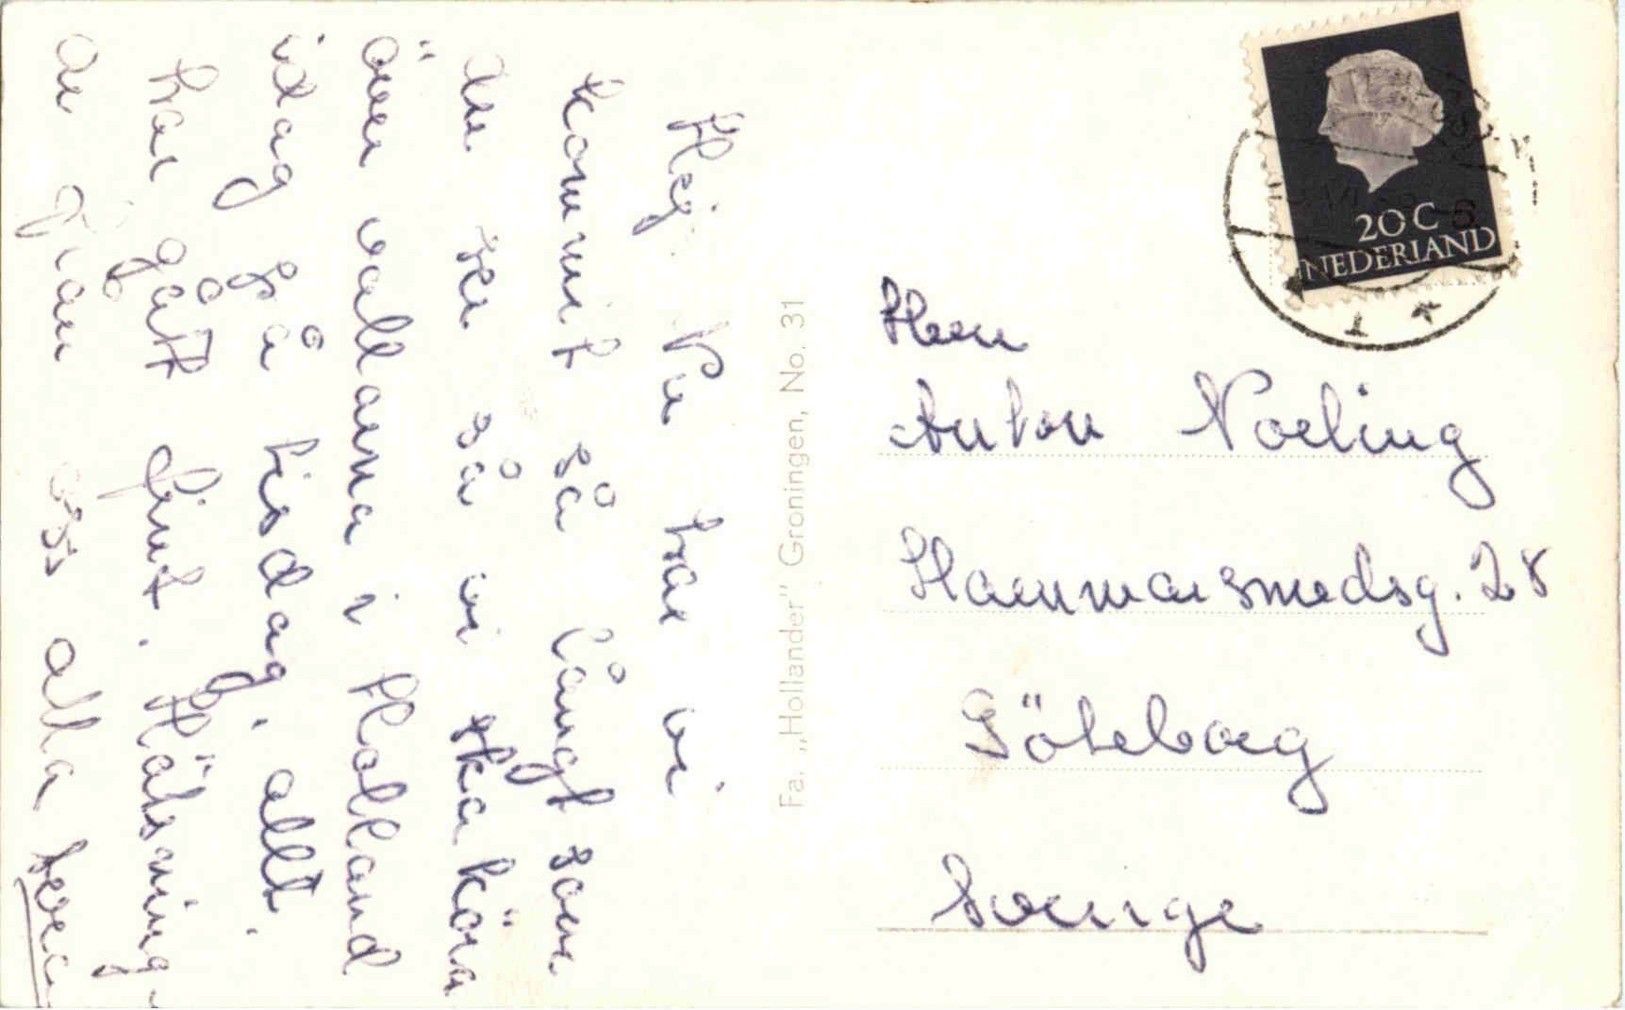 Hej. Nu har vi
kommit så långt som
du ser så vi ska köra
över vallarna i Holland
idag på tisdag, allt.
har gått fint. Hälsning-
ar från oss alla
Fa. „Hollander" Groningen, No. 31
20 C
NEDERLAND
Herr
Anton Norling
Hammarsmedsg. 28
Göteborg
Sverige